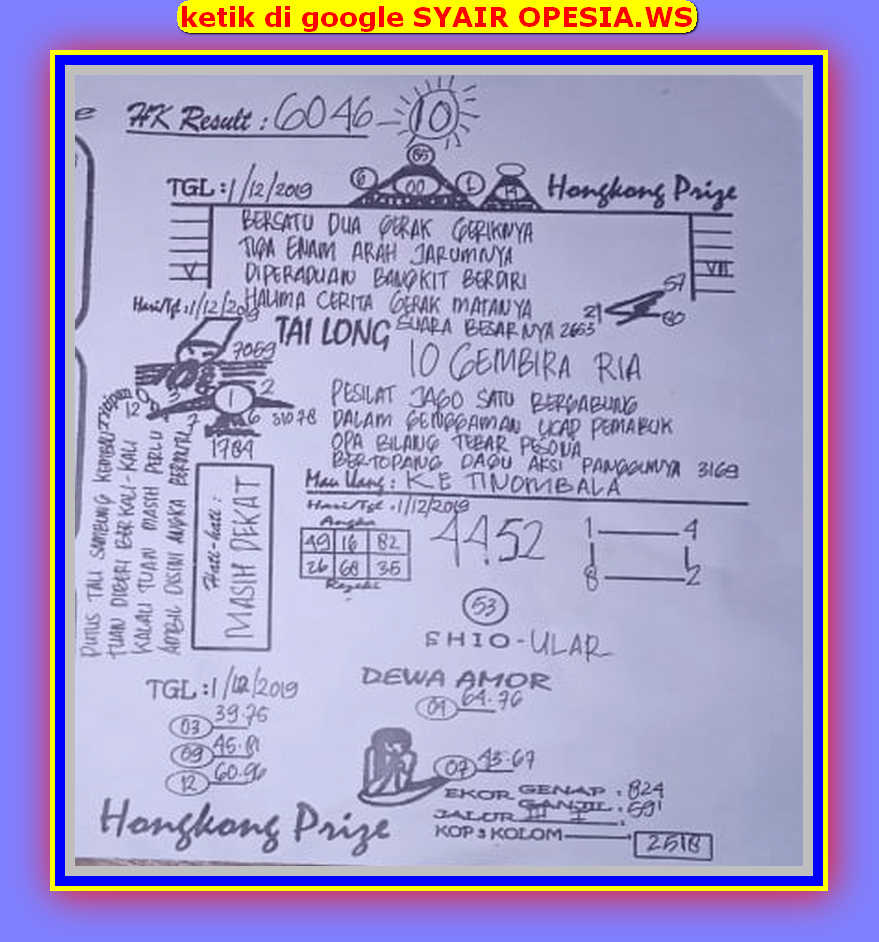 ketik di google SYAIR OPESIA.WS
HK Result : 6046 - 10
TGL : 1/12/2019
6 85 00 1
Hongkong Prize
BERSATU DUA GERAK GERIKNYA
TIGA ENAM ARAH JARUMNYA
DIPERADUAN BANGKIT BERDIRI
HALIMA CERITA GERAK MATANYA
SUARA BESARNYA 2653
V
VII
57
21
60
Hari/Tgl : 1/12/2019
TAI LONG
7059
10 GEMBIRA RIA
0 3 1 2
12
6 31078
1784
PESILAT JAGO SATU BERGABUNG
DALAM GENGGAMAN UCAP PEMABUK
OPA BILANG TEBAR PESONA
BERTOPANG DAGU AKSI PANGGUNNYA 3169
Mau Uang : KE TINOMBALA
PUTUS TALI SAMBUNG KEMBALI
TUAN DIBERI BERKALI-KALI
KALAU TUAN MASIH PERLU
AMBIL DISINI ANGKA BERMUTU
Hati-hati :
MASIH DEKAT
Hari/Tgl : 1/12/2019
Angka
49 16 82
26 68 35
Rejeki
4452
1 4
8 2
53
SHIO - ULAR
TGL : 1/12/2019
03 39.75
09 45.81
12 60.96
DEWA AMOR
01 64.76
07 43.67
EKOR GENAP : 824
GANJIL : 591
JALUR III I :
KOP 3 KOLOM
2518
Hongkong Prize